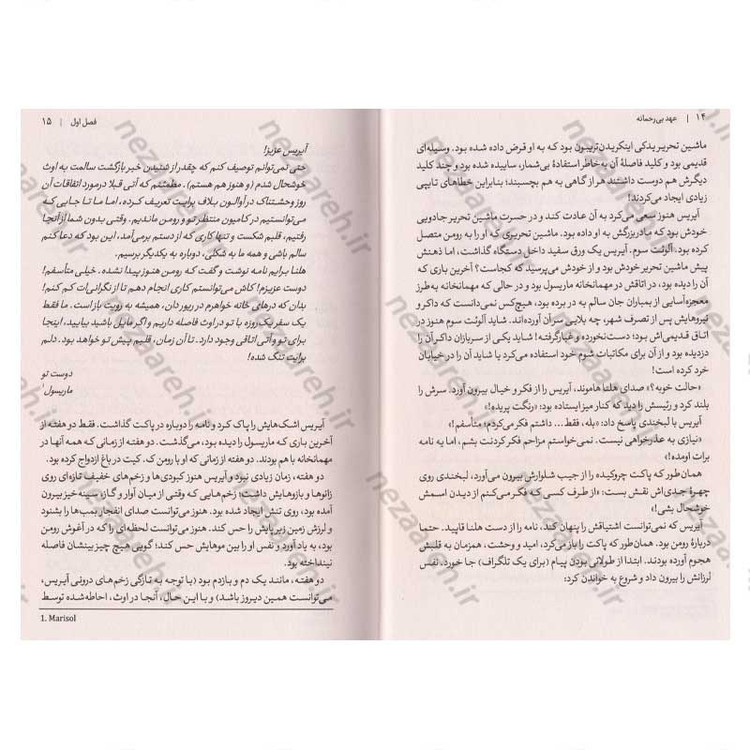 ۱۴ | عهد بی‌رحمانه
ماشین تحریر یدکی اینکریدن تریبون بود که به او قرض داده شده بود. وسیله‌ای
قدیمی بود و کلید فاصلهٔ آن به‌خاطر استفادهٔ بی‌شمار، ساییده شده بود و چند کلید
دیگرش هم دوست داشتند هر از گاهی به هم بچسبند؛ بنابراین خطاهای تایپی
زیادی ایجاد می‌کردند!
آیریس هنوز سعی می‌کرد به آن عادت کند و در حسرت ماشین تحریر جادویی
خودش بود که مادربزرگش به او داده بود. ماشین تحریری که او را به رومن متصل
کرده بود. آلوئت سوم. آیریس یک ورق سفید داخل دستگاه گذاشت، اما ذهنش
پیش ماشین تحریر خودش بود و از خودش می‌پرسید که کجاست؟ آخرین باری که
آن را دیده بود، در اتاقش در مهمانخانه ماریسول بود و در حالی که مهمانخانه به‌طرز
معجزه‌آسایی از بمباران جان سالم به در برده بود، هیچ‌کس نمی‌دانست که داکر و
نیروهایش پس از تصرف شهر، چه بلایی سر آن آورده‌اند. شاید آلوئت سوم هنوز در
اتاق قدیمی‌اش بود؛ دست‌نخورده و غبارگرفته! شاید یکی از سربازان داکر آن را
دزدیده بود و از آن برای مکاتبات شوم خود استفاده می‌کرد یا شاید آن را در خیابان
خرد کرده است!
«حالت خوبه؟» صدای هلنا هاموند، آیریس را از فکر و خیال بیرون آورد. سرش را
بلند کرد و رئیسش را دید که کنار میز ایستاده بود: «رنگت پریده!»
آیریس با لبخندی پاسخ داد: «بله، فقط... داشتم فکر می‌کردم؛ متأسفم!»
«نیازی به عذرخواهی نیست. نمی‌خواستم مزاحم فکر کردنت بشم، اما یه نامه
برات اومده!»
همان‌طور که پاکت چروکیده را از جیب شلوارش بیرون می‌آورد، لبخندی روی
چهرهٔ جدی‌اش نقش بست: «از طرف کسی که فکر می‌کنم از دیدن اسمش
خوشحال بشی!»
آیریس که نمی‌توانست اشتیاقش را پنهان کند، نامه را از دست هلنا قاپید. حتما
دربارهٔ رومن بود. همان‌طور که پاکت را باز می‌کرد، امید و وحشت، همزمان به قلبش
هجوم آورده بودند. ابتدا از طولانی بودن پیام (برای یک تلگراف) جا خورد، نفس
لرزانش را بیرون داد و شروع به خواندن کرد:
فصل اول | ۱۵
آیریس عزیز!
حتی نمی‌توانم توصیف کنم که چقدر از شنیدن خبر بازگشت سالمت به اوث
خوشحال شدم (و هنوز هم هستم). مطمئنم که آتی قبلا درمورد اتفاقات آن
روز وحشتناک در آوالون بلاف برایت تعریف کرده، اما ما تا جایی که
می‌توانستیم در کامیون منتظر تو و رومن ماندیم. وقتی بدون شما از آنجا
رفتیم، قلبم شکست و تنها کاری که از دستم برمی‌آمد، این بود که دعا کنم
سالم باشی و همه ما به شکلی، دوباره به یکدیگر برسیم.
هلنا برایم نامه نوشت و گفت که رومن هنوز پیدا نشده. خیلی متأسفم!
دوست عزیزم! کاش می‌توانستم کاری انجام دهم تا از نگرانی‌ات کم کنم!
بدان که درهای خانه خواهرم در ریور داون، همیشه به رویت باز است. ما فقط
یک سفر یک روزه با تو در اوث فاصله داریم و اگر مایل باشید بیایید، اینجا
برای تو و آتی اتاقی وجود دارد. تا آن زمان، قلبم پیش تو خواهد بود. دلم
برایت تنگ شده!
دوست تو
ماریسول۱
آیریس اشک‌هایش را پاک کرد و نامه را دوباره در پاکت گذاشت. فقط دو هفته از
آخرین باری که ماریسول را دیده بود، می‌گذشت. دو هفته از زمانی که همه آنها در
مهمانخانه با هم بودند. دو هفته از زمانی که او با رومن ک. کیت در باغ ازدواج کرده بود.
دو هفته، زمان زیادی نبود و آیریس هنوز کبودی‌ها و زخم‌های خفیف تازه‌ای روی
زانوها و بازوهایش داشت؛ زخم‌هایی که وقتی از میان آوار و گاز، سینه خیز بیرون
آمده بود، روی تنش ایجاد شده بود. هنوز می‌توانست صدای انفجار بمب‌ها را بشنود
و لرزش زمین زیر پایش را حس کند. هنوز می‌توانست لحظه‌ای را که در آغوش رومن
بود، به یاد آورد و نفس او را بین موهایش حس کند؛ گویی هیچ چیز بینشان فاصله
نینداخته بود.
دو هفته، مانند یک دم و بازدم بود (با توجه به تازگی زخم‌های درونی آیریس،
می‌توانست همین دیروز باشد) و با این حال، آنجا در اوث، احاطه‌شده توسط
1. Marisol
nezaareh.ir